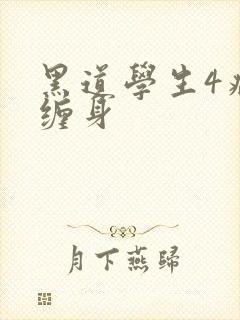 黑道學生4
缠身
月下燕歸